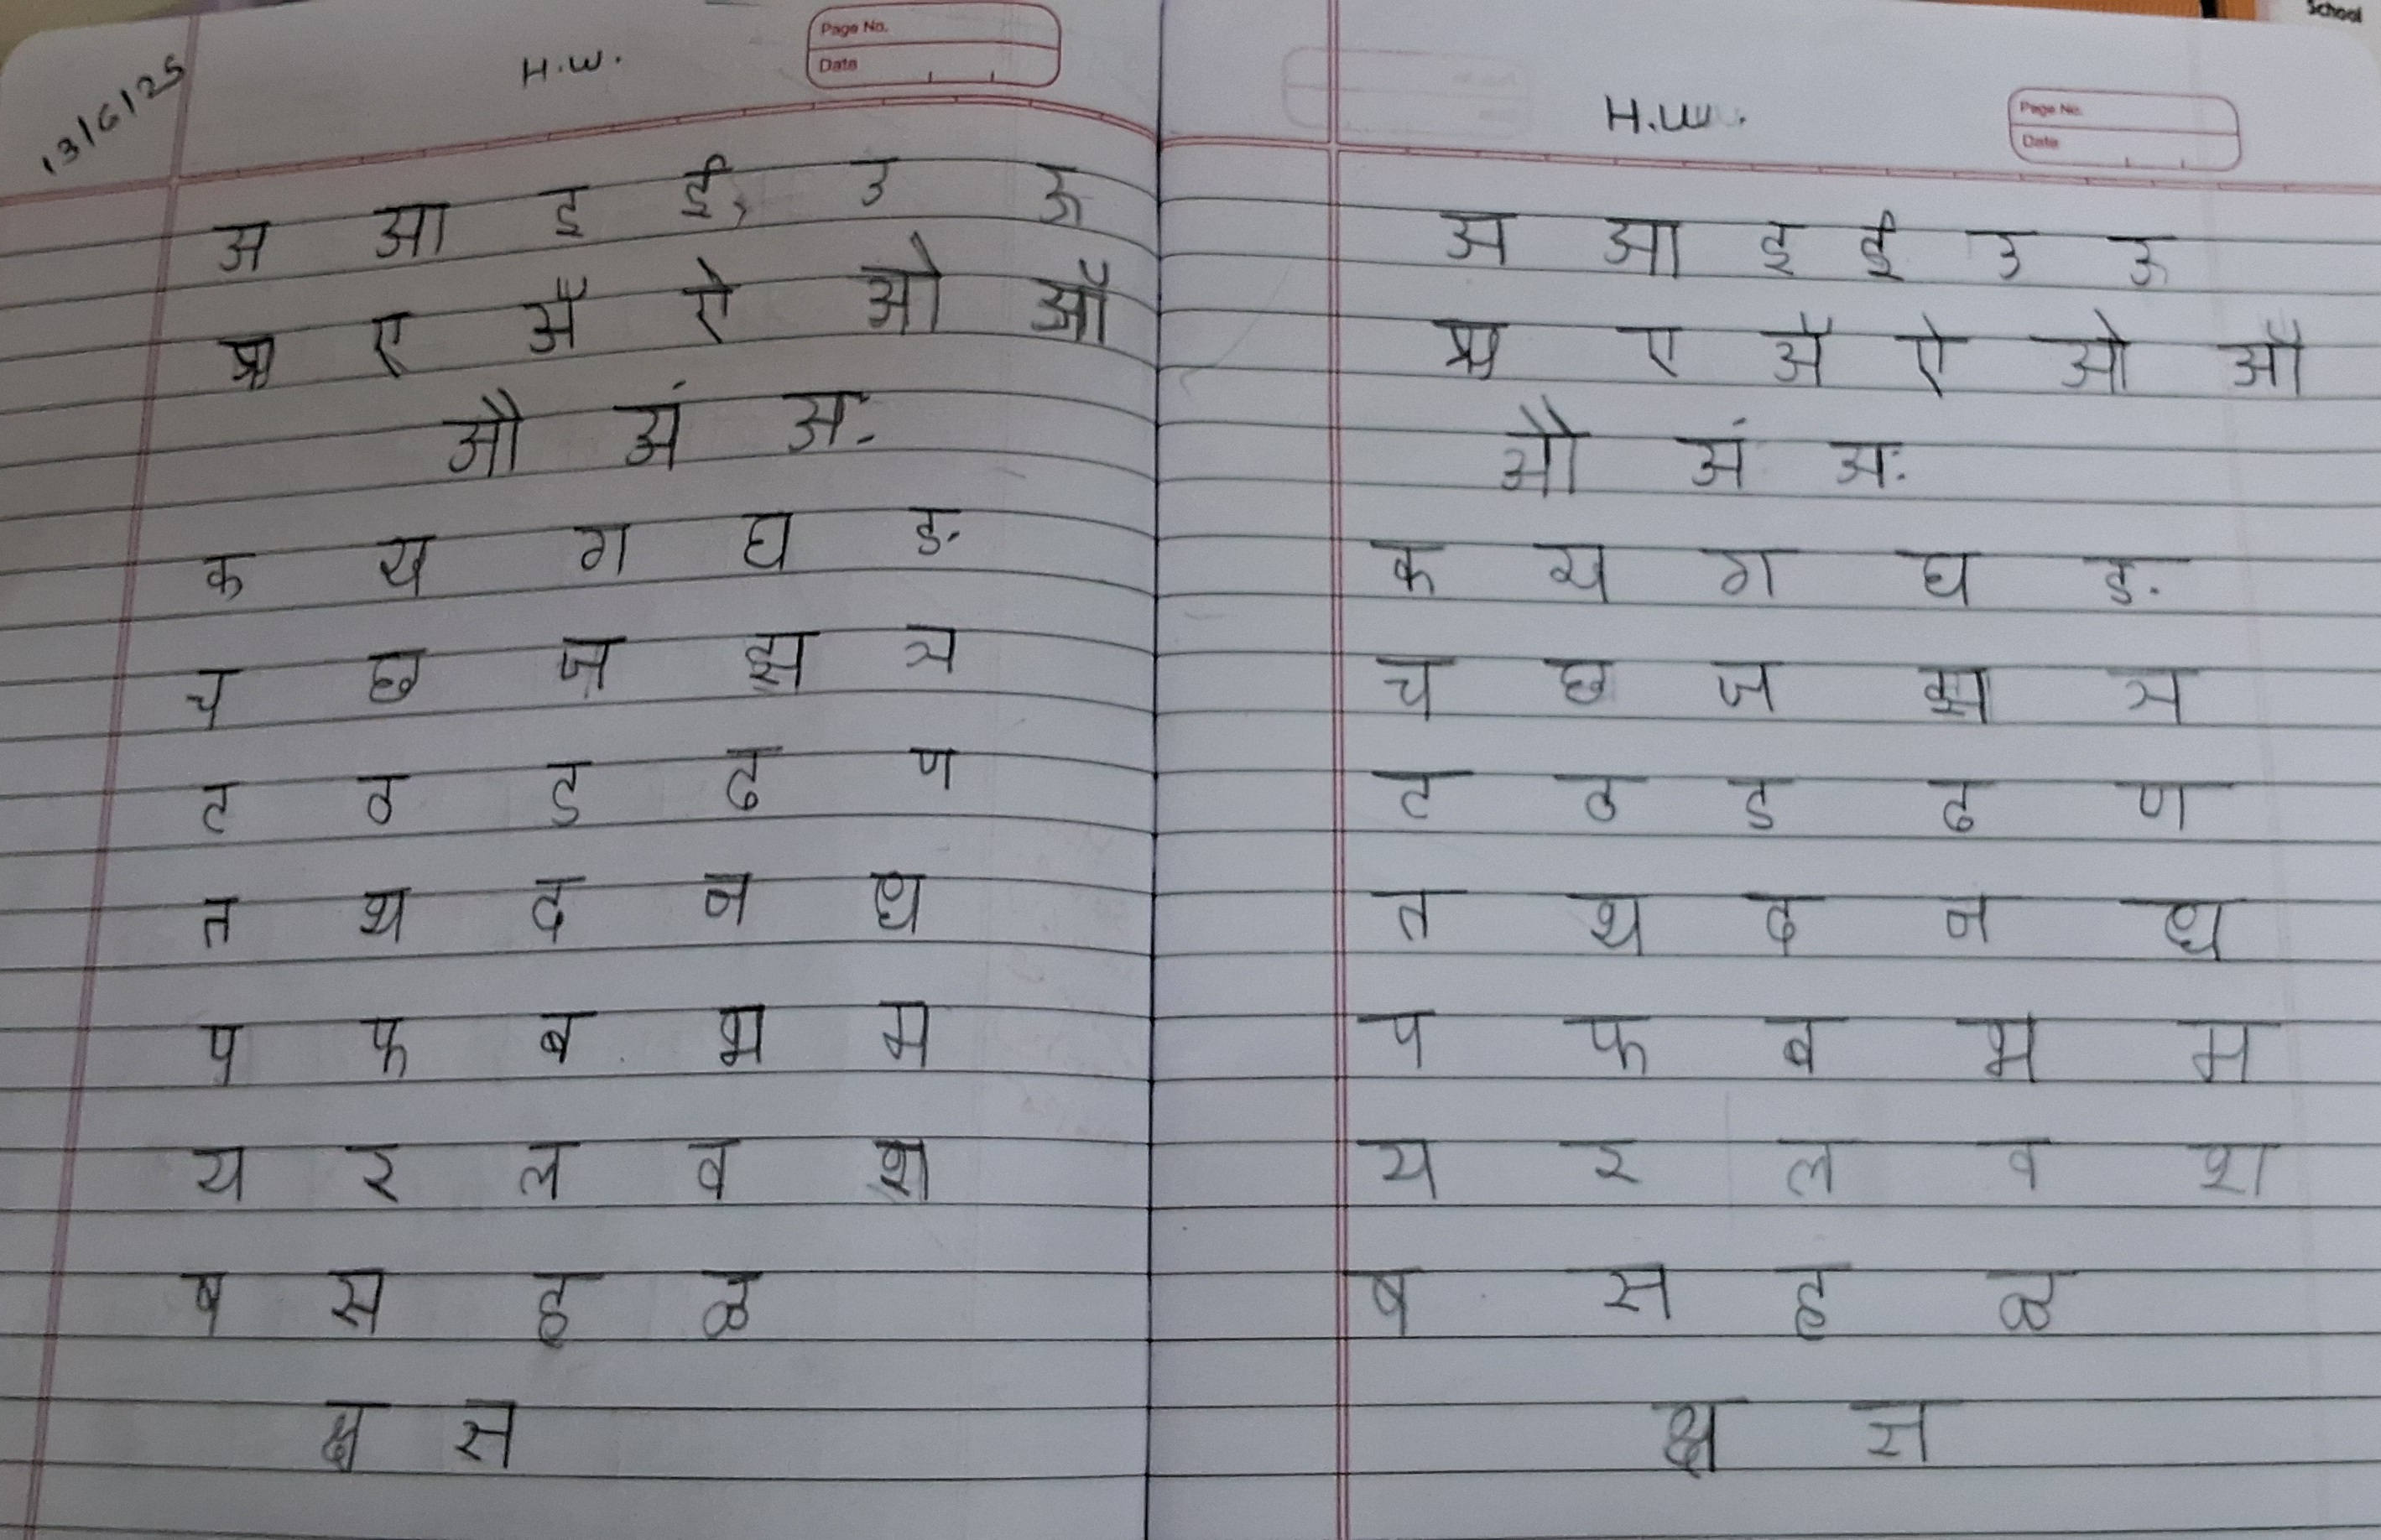 School
13/6/25
H.W.
Page No.
Date
अ आ इ ई, उ ऊ
ऋ ए ॲ ऐ ओ ऑ
औ अं अः
क य ग घ ङ
च छ ज झ ञ
ट ठ ड ढ ण
त थ द न ध
प फ ब भ म
य र ल व श
ष स ह ळ
क्ष
H.W.
Page No.
Date
अ आ इ ई उ ऊ
ऋ ए ॲ ऐ ओ ऑ
औ अं अः
क य ग घ ङ
च छ ज झ ञ
ट ठ ड ढ ण
त थ द न ध
प फ ब भ म
य र ल व श
ष स ह ळ
क्ष